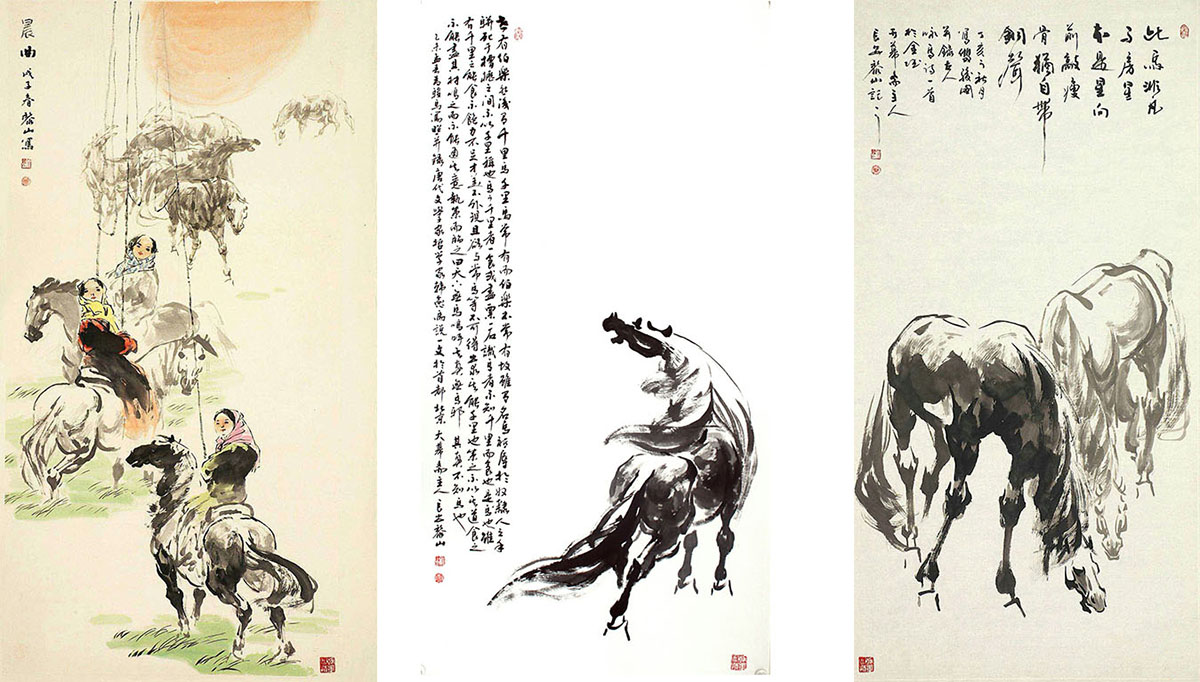 晨曲
戊子春黎山寫
世有伯樂然後有千里馬千里馬常有而伯樂不常有故雖有名馬祇辱於奴隸人之手
駢死于槽櫪之間不以千里稱也馬之千里者一食或盡粟一石識馬者不知千里而食也是馬也雖
有千里之能食不飽力不足才美不外現且欲與常馬等不可得安求其能千里也策之不以其道食之
不能盡其材鳴之而不能通其意執策而臨之曰天下無馬嗚呼其真無馬邪 其真不知馬也
乙未孟夏為駿馬寫照并錄唐代文學家哲學家韓愈馬說一文於首都北京大華齋主人長安黎山
此馬非凡
馬房星
本是星向
前敲瘦
骨猶自帶
銅聲
丁亥之秋月
寫雙駿圖
并錄古人
詠馬詩一首
於金
大華齋主人
長安黎山記之